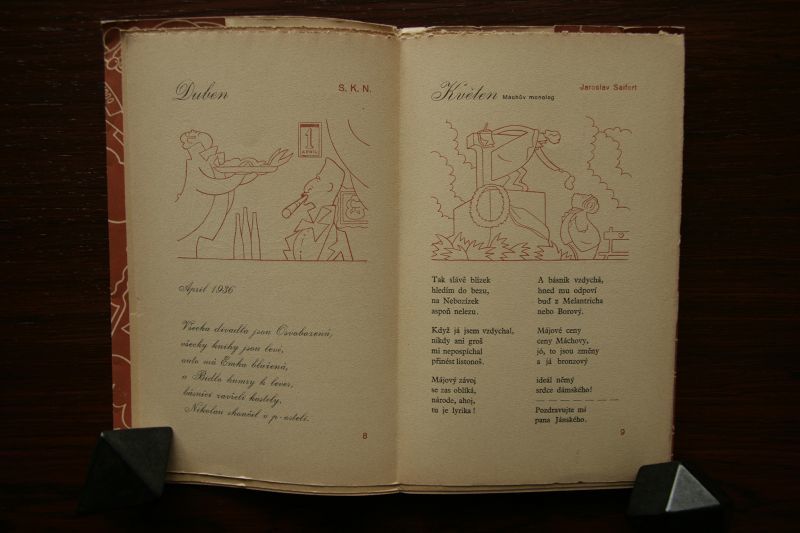 Duben
S. K. N.
1
APRIL
Apríl 1936
Všecka divadla jsou Osvobozená,
všecky knihy jsou levé,
auto má Emka blažená,
a Bidlo humry k večeř,
básníci zavřeli kastely,
Nikolau skončil v p-osteli.
8
Květen Máchův monolog
Jaroslav Seifert
Tak slávě blízek
hledím do bezu,
na Nebozízek
aspoň nelezu.
Když já jsem vzdychal,
nikdy ani groš
mi nepospíchal
přinést listonoš.
Májový závoj
se zas oblíká,
národe, ahoj,
tu je lyrika!
A básník vzdychá,
hned mu odpoví
buď z Melantricha
nebo Borový.
Májové ceny
ceny Máchovy,
jó, to jsou změny
a já bronzový
ideál němý
srdce dámského!
Pozdravujte mi
pana Jánského.
9